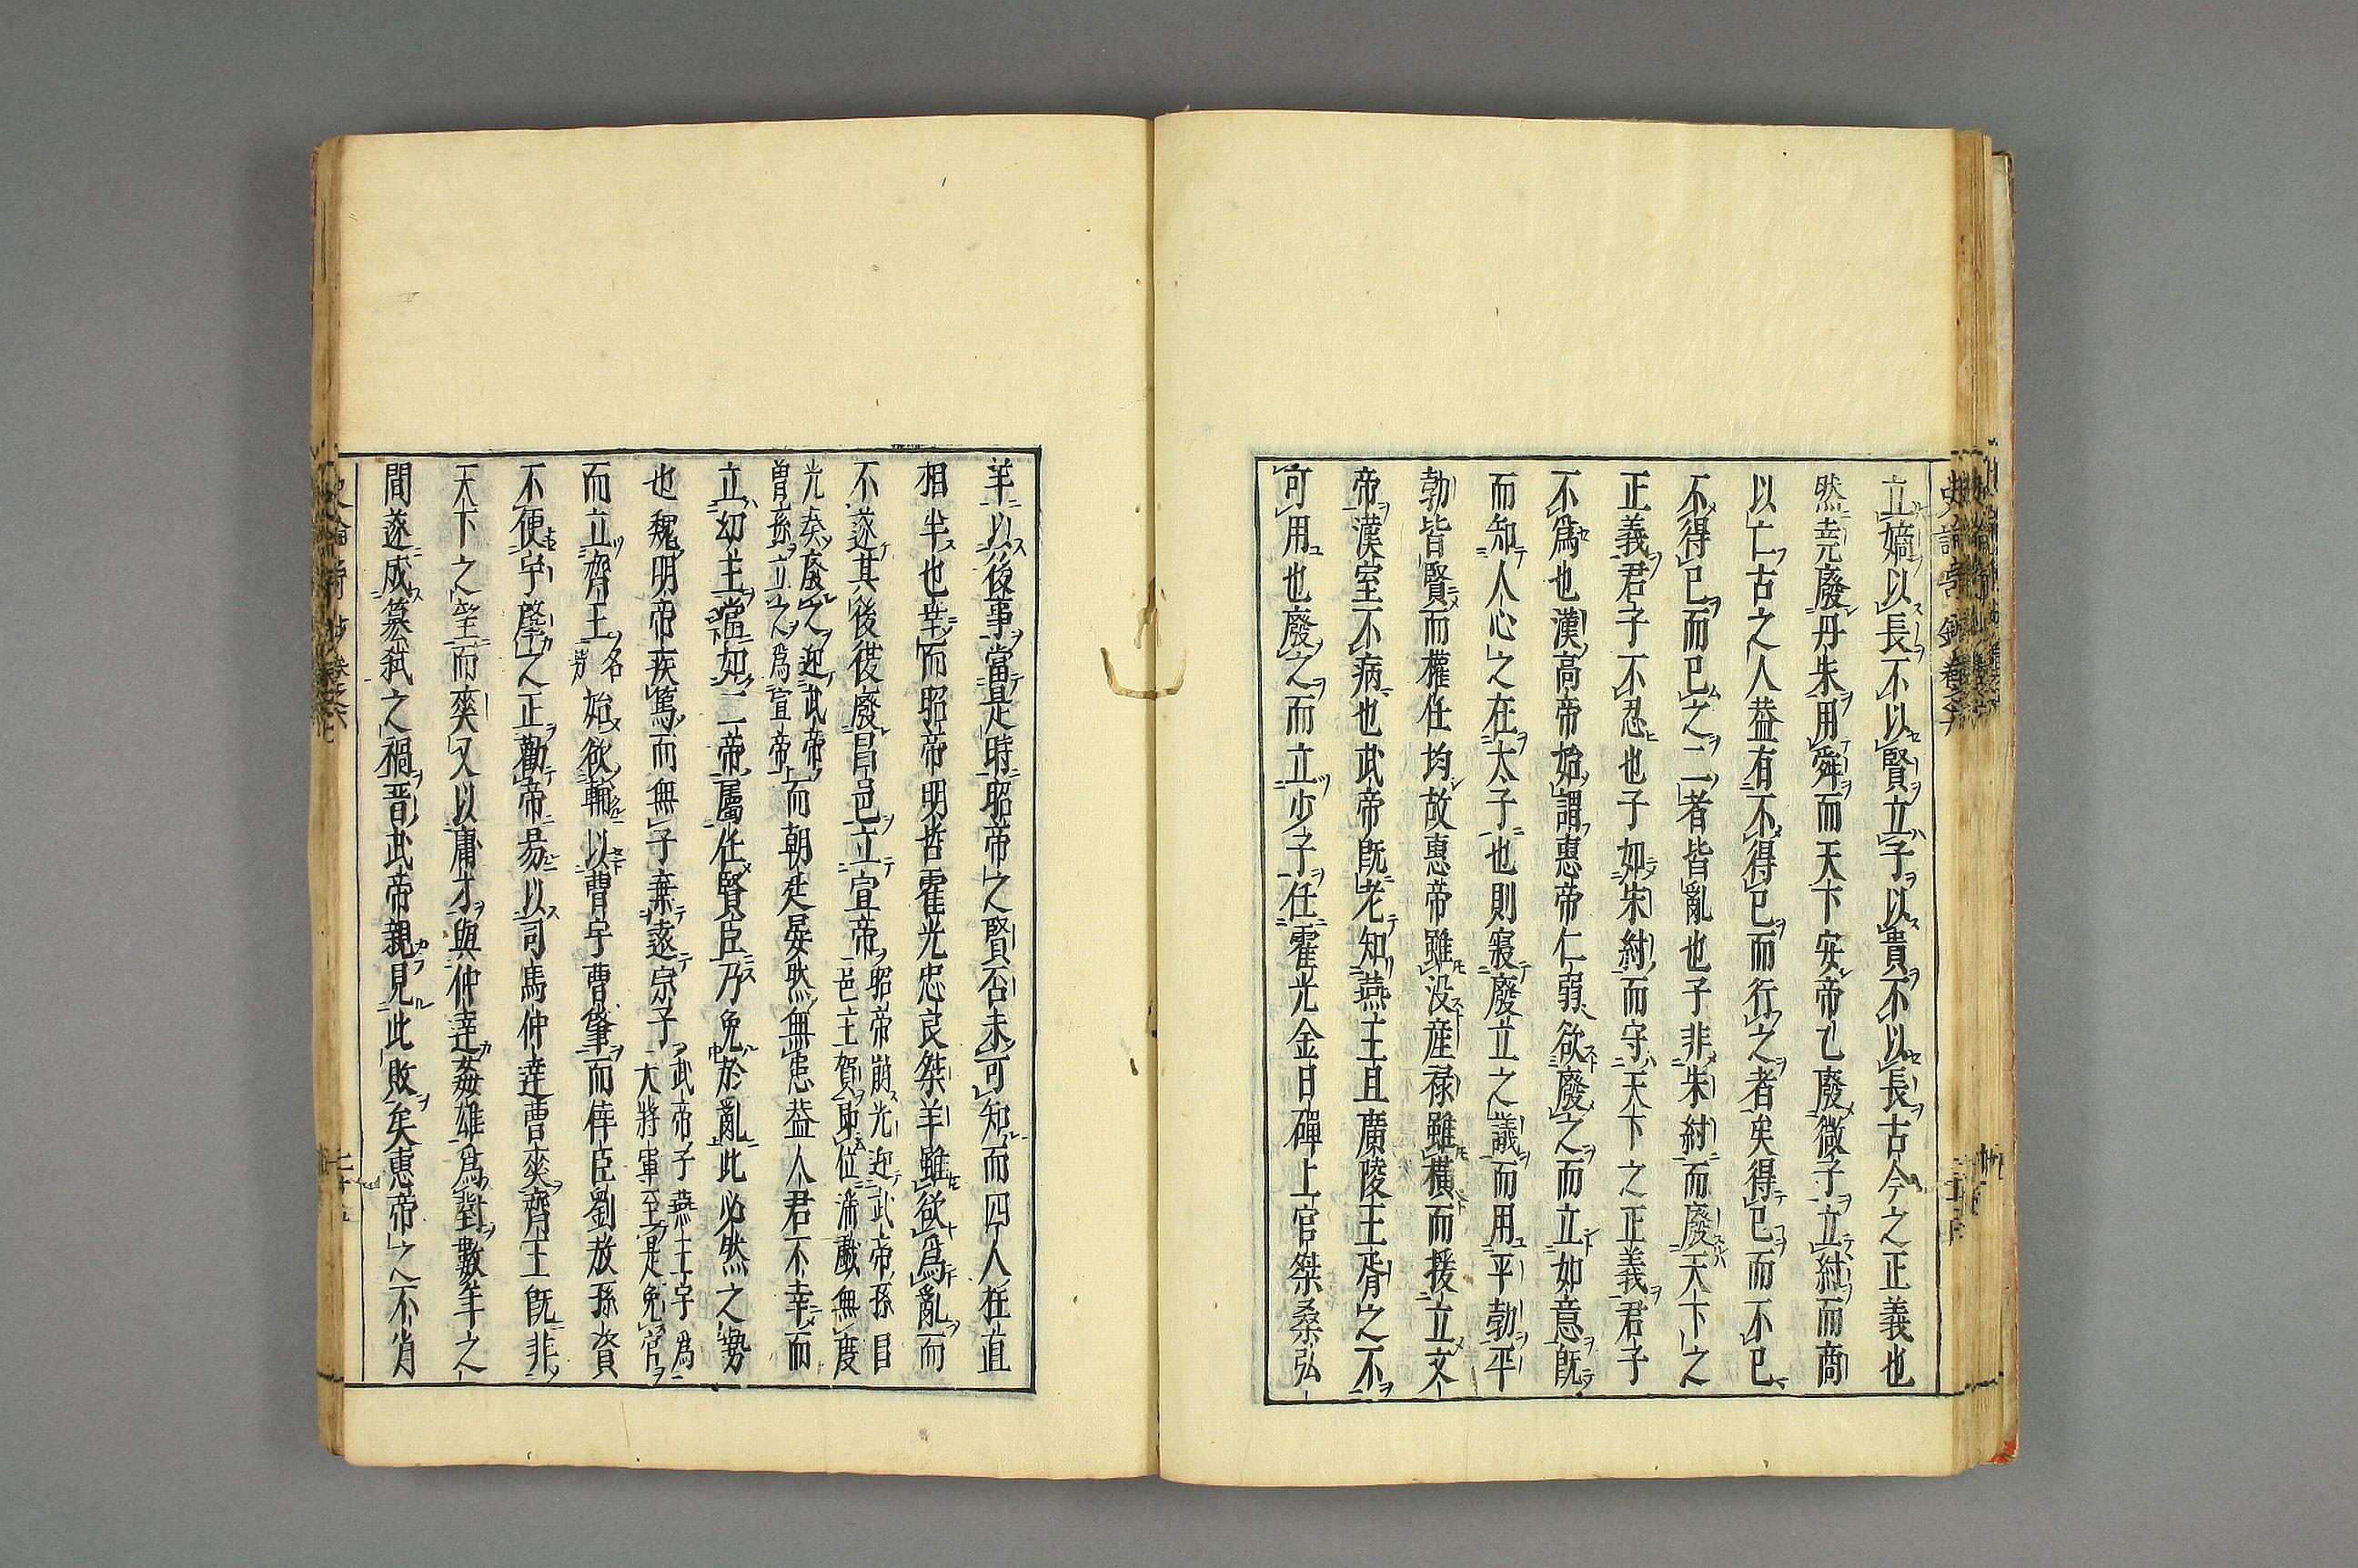 立嫡以長不以賢立子以貴不以長古今之正義也
然堯廢丹朱用舜而天下安帝乙廢微子立紂而商
以亡古之人葢有不得已而行之者矣得已而不已
不得已而已之二者皆亂也子非朱紂而廢天下之
正義君子不忍也子如朱紂而守天下之正義君子
不爲也漢高帝始謂惠帝仁弱欲廢之而立如意旣
而知人心之在太子也則寢廢立之議而用平勃平
勃皆賢而權任均故惠帝雖没産祿雖橫而援立文
帝漢室不病也武帝旣老知燕王旦廣陵王胥之不
可用也廢之而立少子任霍光金日磾上官桀桑弘
羊以後事當是時昭帝之賢否未可知而四人枉直
相半也幸而昭帝明哲霍光忠良桀羊雖欲爲亂而
不遂其後從廢昌邑立宣帝昭帝崩光迎武帝孫昌邑王賀卽位淫戲無度
光奏廢之迎武帝曾孫立之爲宣帝而朝廷晏然無患葢人君不幸而
立幼主當如二帝屬任賢臣乃免於亂此必然之勢
也魏明帝疾篤而無子棄遠宗子武帝子燕王宇爲大將軍至是免官
而立齊王名芳始欲輔以曹宇曹肇而倖臣劉放孫資
不便宇肇之正勸帝易以司馬仲達曹爽齊王旣非
天下之望而爽又以庸才與仲達姦雄爲對數年之
間遂成簒弑之禍晋武帝親見此敗矣惠帝之不肖